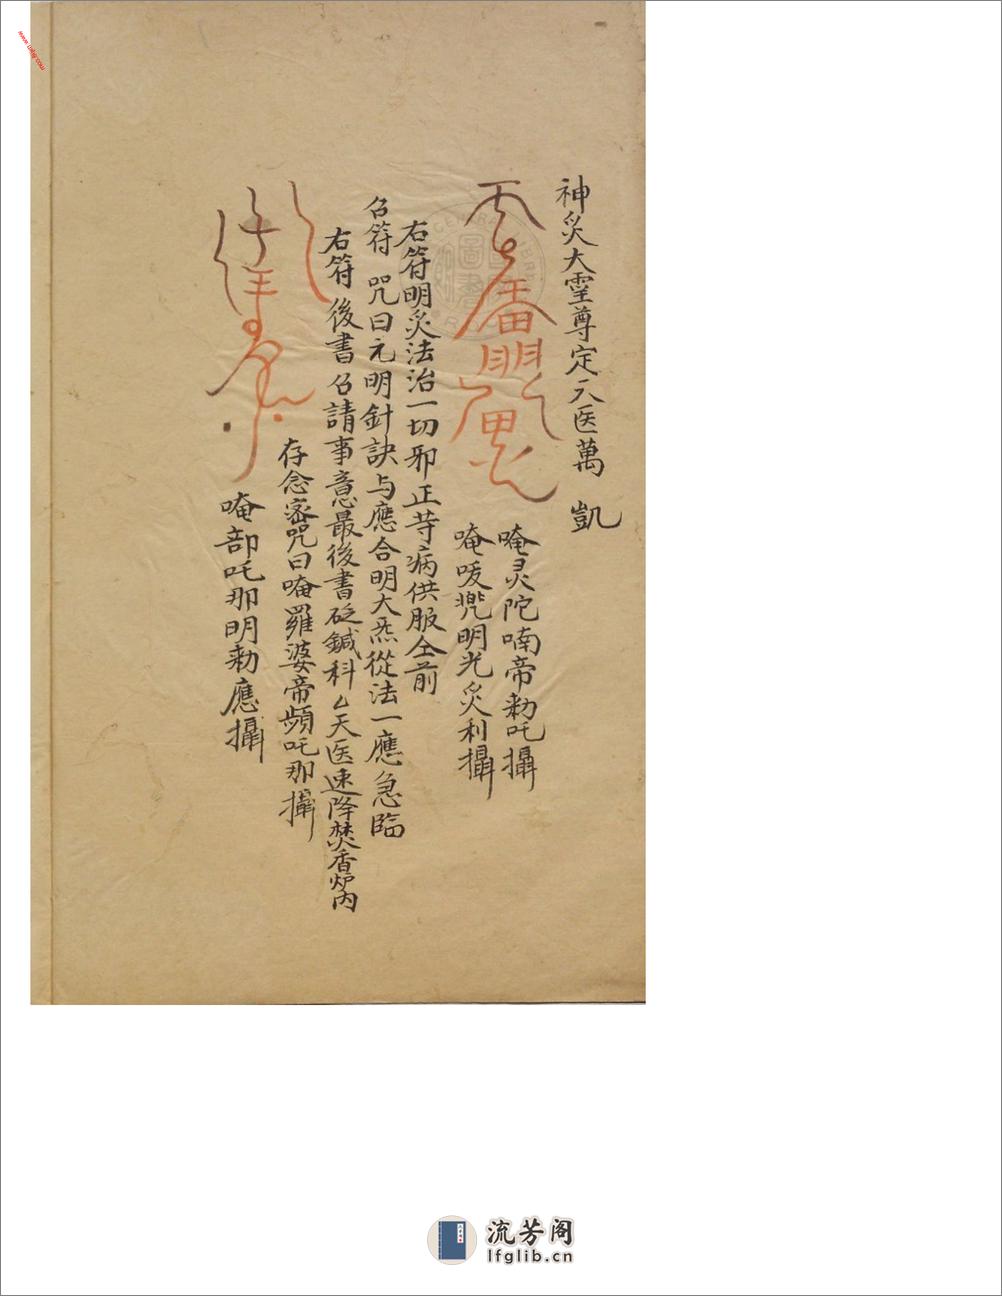 神灸大霊尊定天医萬凱
唵灵陀喃帝勅吒攝
唵唛兠明光灸利攝
右符明灸法治一切邪正䒭病供服仝前
召符 咒曰元明針訣与應合明大炁從法一應急臨
右符後書召請事意最後書砭鍼科厶天医速降焚香炉内
存念密咒曰唵羅婆帝頻吒那攝
唵部吒那明勅應攝
流芳阁
lfglib.cn